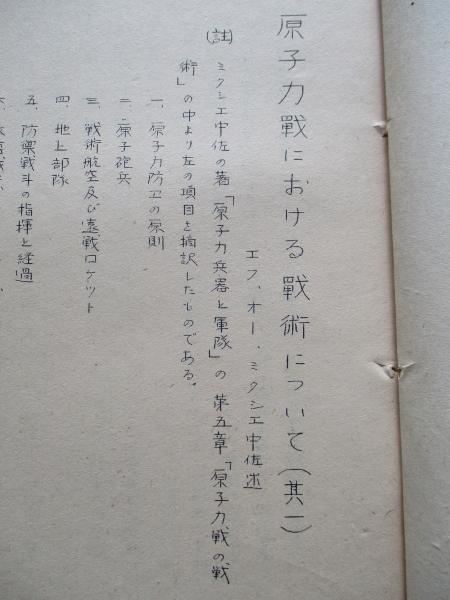 原子力戰における戰術について(其一)
エフ、オー、ミクシエ中佐述
(註) ミクシエ中佐の著「原子力兵器と軍隊」の第五章「原子力戰の戦
術」の中より左の項目を摘訳したものである。
一、原子力防卫の原則
二、原子砲兵
三、戦術航空及び遠戦ロケット
四、地上部隊
五、防禦戦斗の指揮と経過